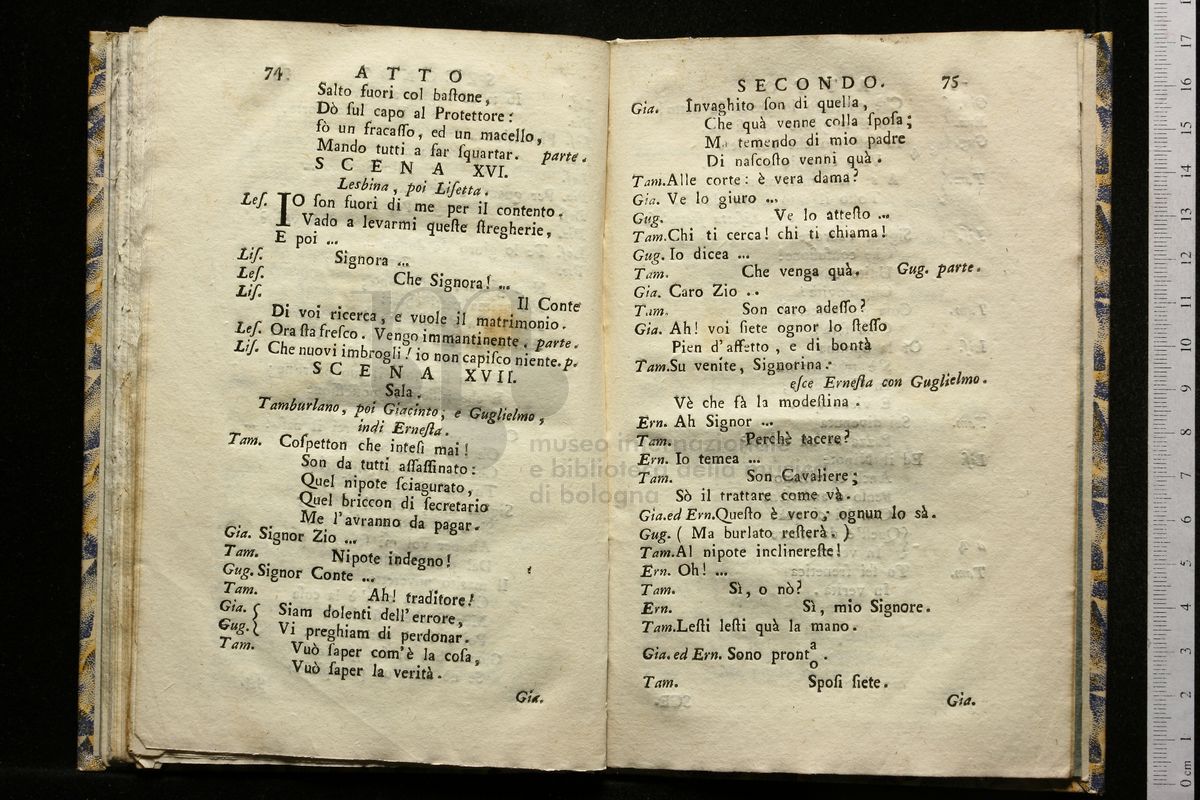 74 ATTO
Salto fuori col baſtone,
Dò ſul capo al Protettore:
fò un fracaſſo, ed un macello,
Mando tutti a far ſquartar. parte.
SCENA XVI.
Lesbina, poi Liſetta.
Leſ. IO ſon fuori di me per il contento.
Vado a levarmi queſte ſtregherie,
E poi ...
Liſ. Signora ...
Leſ. Che Signora! ...
Liſ. Il Conte
Di voi ricerca, e vuole il matrimonio.
Leſ. Ora ſta freſco. Vengo immantinente. parte.
Liſ. Che nuovi imbrogli! io non capiſco niente. p.
SCENA XVII.
Sala.
Tamburlano, poi Giacinto, e Guglielmo,
indi Erneſta.
Tam. Coſpetton che inteſi mai!
Son da tutti aſſaſſinato:
Quel nipote ſciagurato,
Quel briccon di ſecretario
Me l'avranno da pagar.
Gia. Signor Zio ...
Tam. Nipote indegno!
Gug. Signor Conte ...
Tam. Ah! traditore!
Gia. { Siam dolenti dell'errore,
Gug. { Vi preghiam di perdonar.
Tam. Vuò ſaper com'è la coſa,
Vuò ſaper la verità.
Gia.
SECONDO. 75
Gia. Invaghito ſon di quella,
Che quà venne colla ſpoſa;
Ma temendo di mio padre
Di naſcoſto venni quà.
Tam. Alle corte: è vera dama?
Gia. Ve lo giuro ...
Gug. Ve lo atteſto ...
Tam. Chi ti cerca! chi ti chiama!
Gug. Io dicea ...
Tam. Che venga quà. Gug. parte.
Gia. Caro Zio ..
Tam. Son caro adeſſo?
Gia. Ah! voi ſiete ognor lo ſteſſo
Pien d'affetto, e di bontà
Tam. Su venite, Signorina:
eſce Erneſta con Guglielmo.
Vè che fà la modeſtina.
Ern. Ah Signor ...
Tam. Perchè tacere?
Ern. Io temea ...
Tam. Son Cavaliere;
Sò il trattare come và.
Gia. ed Ern. Queſto è vero; ognun lo sà.
Gug. ( Ma burlato reſterà. )
Tam. Al nipote inclinereſte!
Ern. Oh! ...
Tam. Sì, o nò?
Ern. Sì, mio Signore.
Tam. Leſti leſti quà la mano.
Gia. ed Ern. Sono pront a/o.
Tam. Spoſi ſiete.
Gia.
museo internazionale
e biblioteca della musica
di bologna
0 cm 1 2 3 4 5 6 7 8 9 10 11 12 13 14 15 16 17